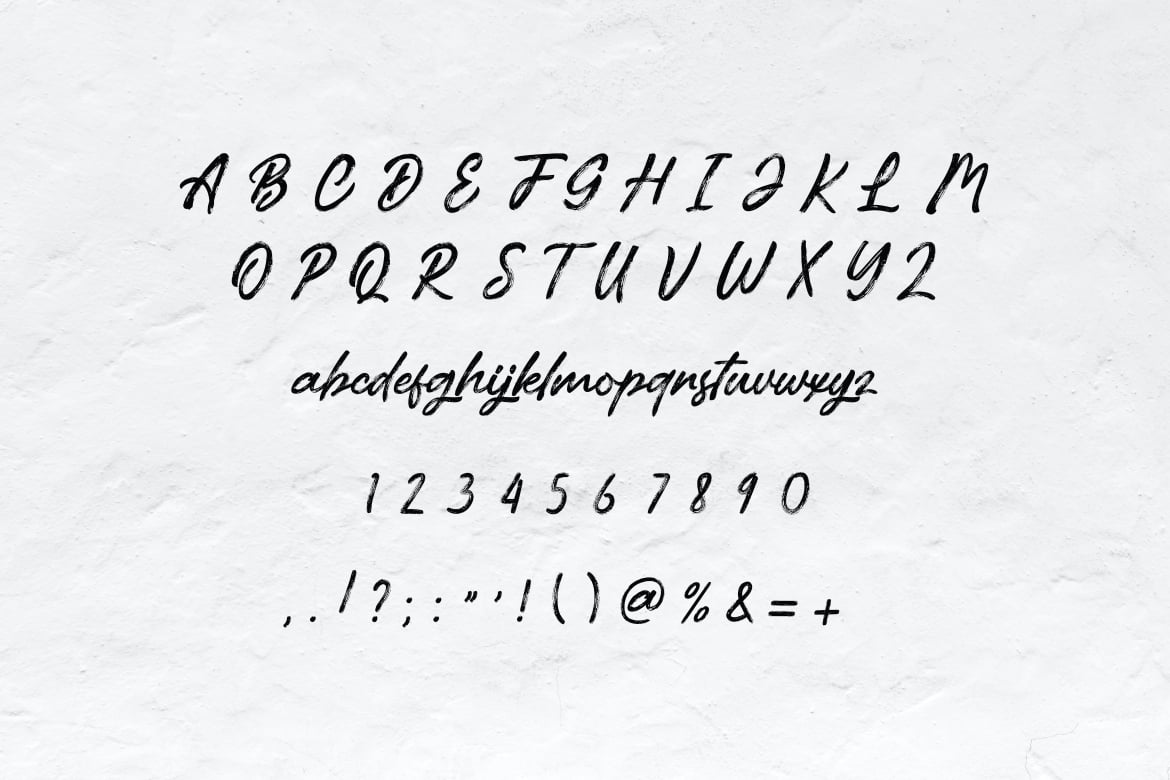 A B C D E F G H I J K L M
O P Q R S T U V W X Y Z
abcdefghijklmopqrstuvwxyz
1 2 3 4 5 6 7 8 9 0
, . / ? ; : " ' ! ( ) @ % & = +